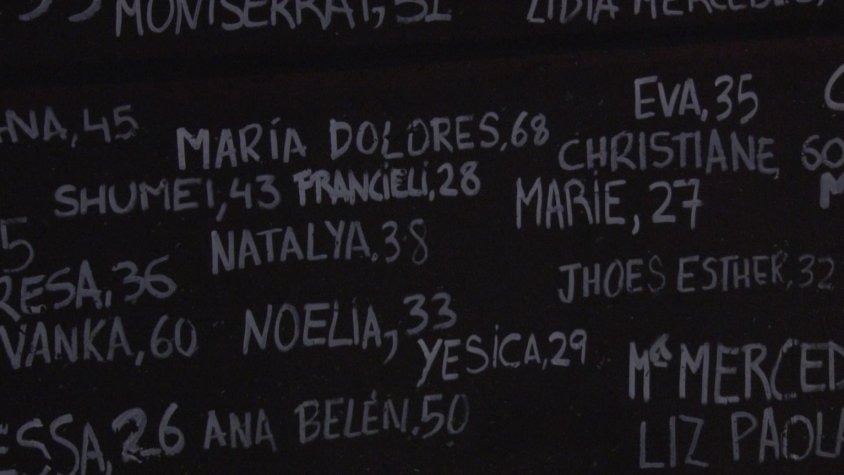 MONTSERRAT, 51
LIDIA MERCEDES,
EVA, 35
NA, 45
MARÍA DOLORES, 68
CHRISTIANE, 60
SHUMEI, 43
FRANCIELI, 28
MARIE, 27
5
NATALYA. 38
RESA, 36
JHOES ESTHER, 32
VANKA, 60
NOELIA, 33
YESICA, 29
Mª MERCED
ESSA, 26
ANA BELÉN. 50
LIZ PAOLA